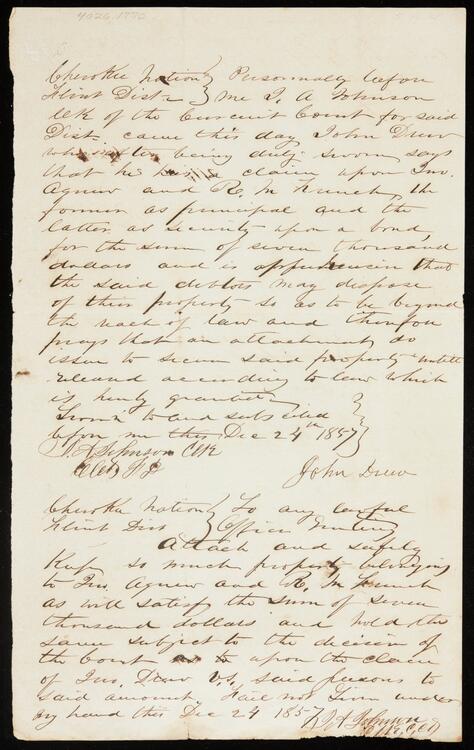 4026.1770
Cherokee Nation } Personally before
Flint Dist } me T. A Johnson
Clk of the Circuit Court for said
Dist. came this day John Drew
who after being duly sworn says
that he has a claim upon Jno.
Agnew and R. M French, the
former as principal and the
latter as security upon a bond
for the sum of seven thousand
dollars and is apprehensive that
the said debtors may dispose
of their property so as to be beyond
the reach of law and therefore
prays that an attachment do
issue to secure said property untill
released according to law which
is hereby granted
Sworn to and subscribed
before me this Dec 24th 1857
T. A Johnson Clk
John Drew
Cherokee Nation } To any lawful
Flint Dist } Officer Greeting
Attach and safely
Keep so much property belonging
to Jno. Agnew and R. M French
as will satisfy the sum of seven
thousand dollars and hold the
same subject to the decision of
the Court as to upon the claim
of Jno. Drew vs. said persons to
said amount. Fail not Given under
my hand this Dec 24 1857
T. A Johnson